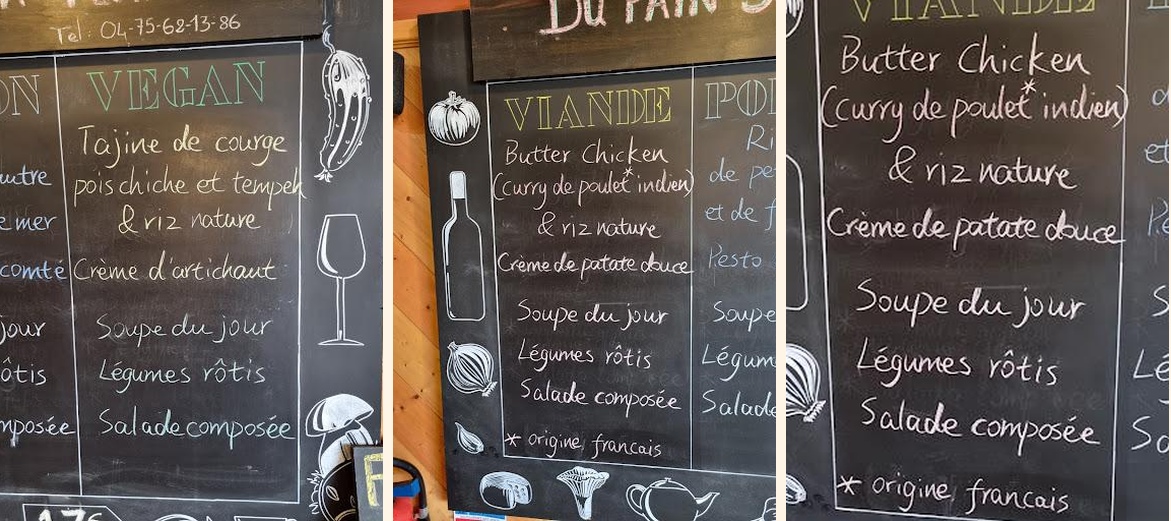 Tel: 04-75-62-13-86
ON
VEGAN
Tajine de courge
pois chiche et tempeh
& riz nature
Crème d'artichaut
Soupe du jour
Légumes rôtis
Salade composée
autre
e mer
comté
jour
ôtis
mposée
DU PAIN
VIANDE
Butter Chicken
(curry de poulet* indien)
& riz nature
Crème de patate douce
Soupe du jour
Légumes rôtis
Salade composée
* origine francais
POI
Ri
de pe
et de f
Pesto
Soupe
Légum
Salade
VIANDE
Butter Chicken
(curry de poulet* indien)
& riz nature
Crème de patate douce
Soupe du jour
Légumes rôtis
Salade composée
* origine francais